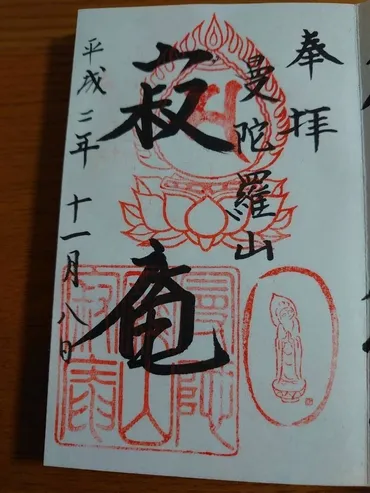 奉拝
曼陀羅山
寂庵
平成二年十一月八日
曼陀
羅山
寂庵